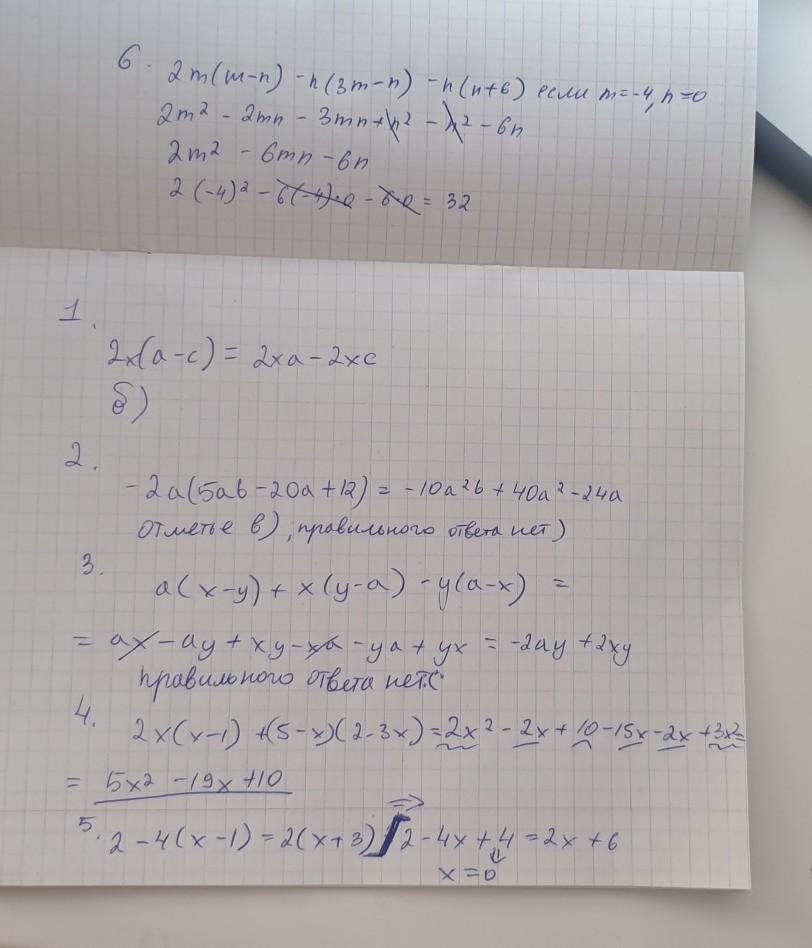 6. 2m(m-n) -n(3m-n) -n(n+6) если m=-4, n=0
2m² - 2mn - 3mn+n² - n² - 6n
2m² - 6mn - 6n
2(-4)² - 6(-4)·0 - 6·0 = 32
1.
2x(a-c) = 2xa - 2xc
б)
2.
-2a(5ab-20a+12) = -10a²b + 40a² - 24a
отметье в), правильного ответа нет)
3.
a(x-y) + x(y-a) - y(a-x) =
= ax - ay + xy - xa - ya + yx = -2ay + 2xy
правильного ответа нет:(
4.
2x(x-1) +(5-x)(2-3x) = 2x² - 2x + 10 - 15x - 2x + 3x² =
= 5x² - 19x + 10
5. 2 - 4(x-1) = 2(x+3) ⇒ 2 - 4x + 4 = 2x + 6
x = 0